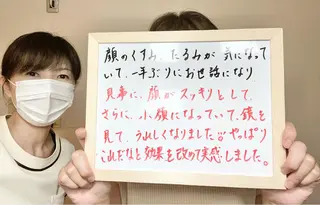 顔のくすみ、たるみが 気になって
いて、一年ぶりにお世話になり
見事に、顔がスッキリとして、
さらに、小顔になっていて、鏡を
見て、うれしくなりました!!やっぱり
これだなと効果を改めて実感しました。